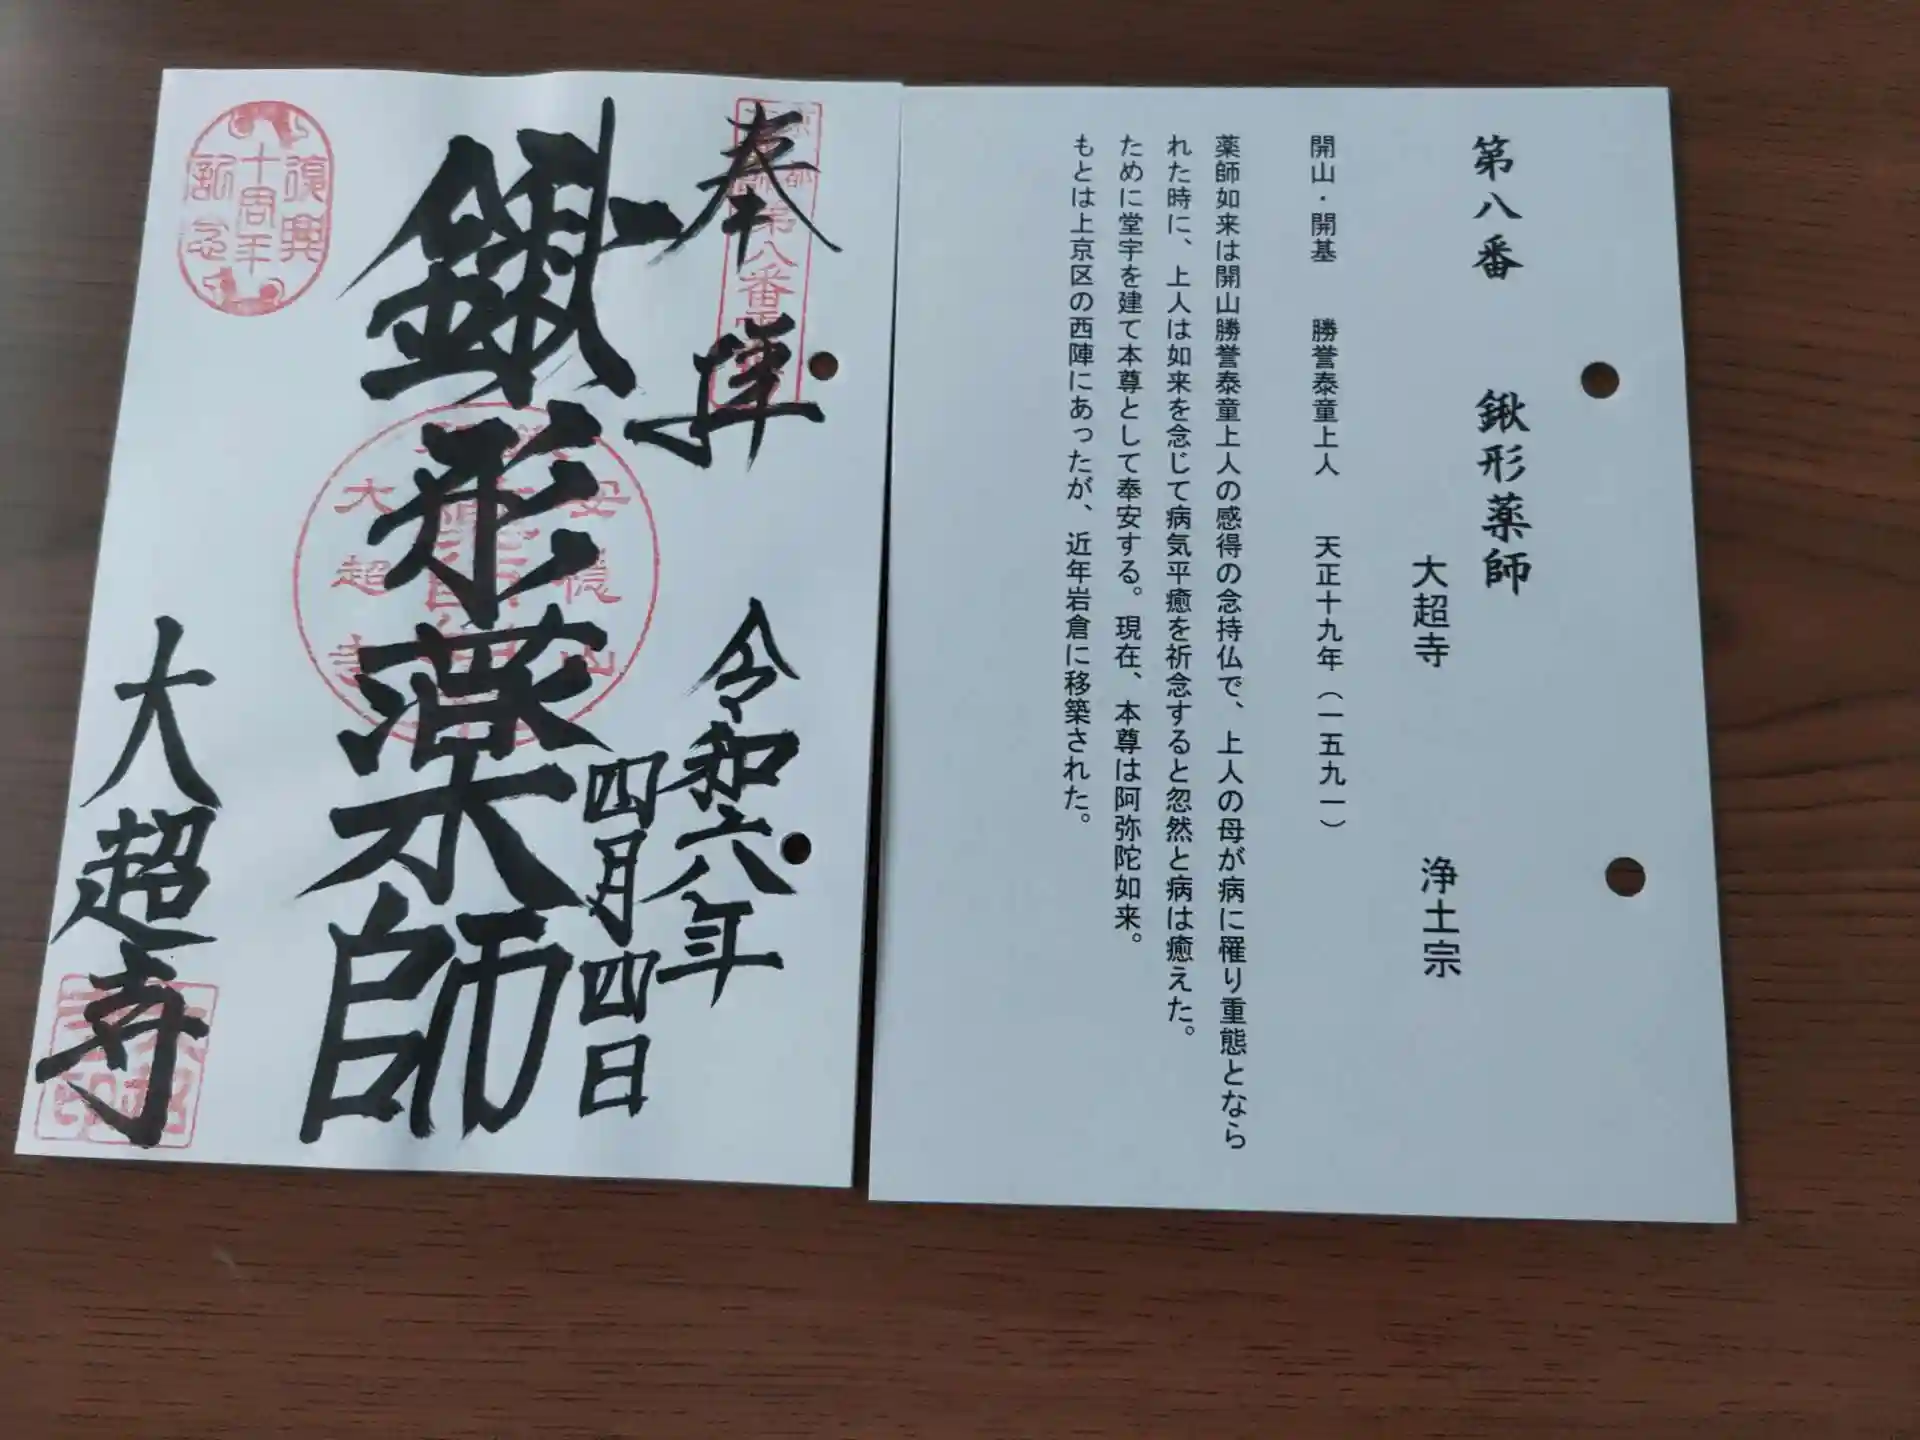 第八番　鍬形薬師
大超寺　浄土宗
開山・開基　勝誉泰童上人　天正十九年（一五九一）
薬師如来は開山勝誉泰童上人の感得の念持仏で、上人の母が病に罹り重態となら
れた時に、上人は如来を念じて病気平癒を祈念すると忽然と病は癒えた。
ために堂宇を建て本尊として奉安する。現在、本尊は阿弥陀如来。
もとは上京区の西陣にあったが、近年岩倉に移築された。
奉拝
第八番
令和六年
四月四日
鍬形薬師
安穏山
大超寺
大超寺
復興
十周年
記念